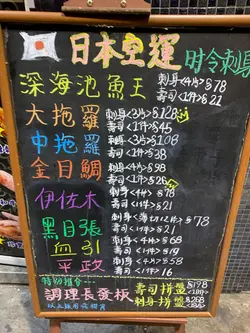 日本空運
時令刺身
深海池魚王
刺身<4片>$78
壽司<1件>$21
大拖羅
刺身<3片>$128
壽司<1件>$45
中拖羅
刺身<3片>$108
壽司<1件>$38
金目鯛
刺身<4片>$98
壽司<1件>$28
伊佐木
刺身<薄切><4片>$78
壽司<1件>$21
黑目張
刺身<4片>$78
壽司<1件>$21
血引
刺身<4片>$68
壽司<1件>$18
平政
刺身<4片>$58
壽司<1件>$16
特別推介
調理長發板
壽司拼盤$178
刺身拼盤$268